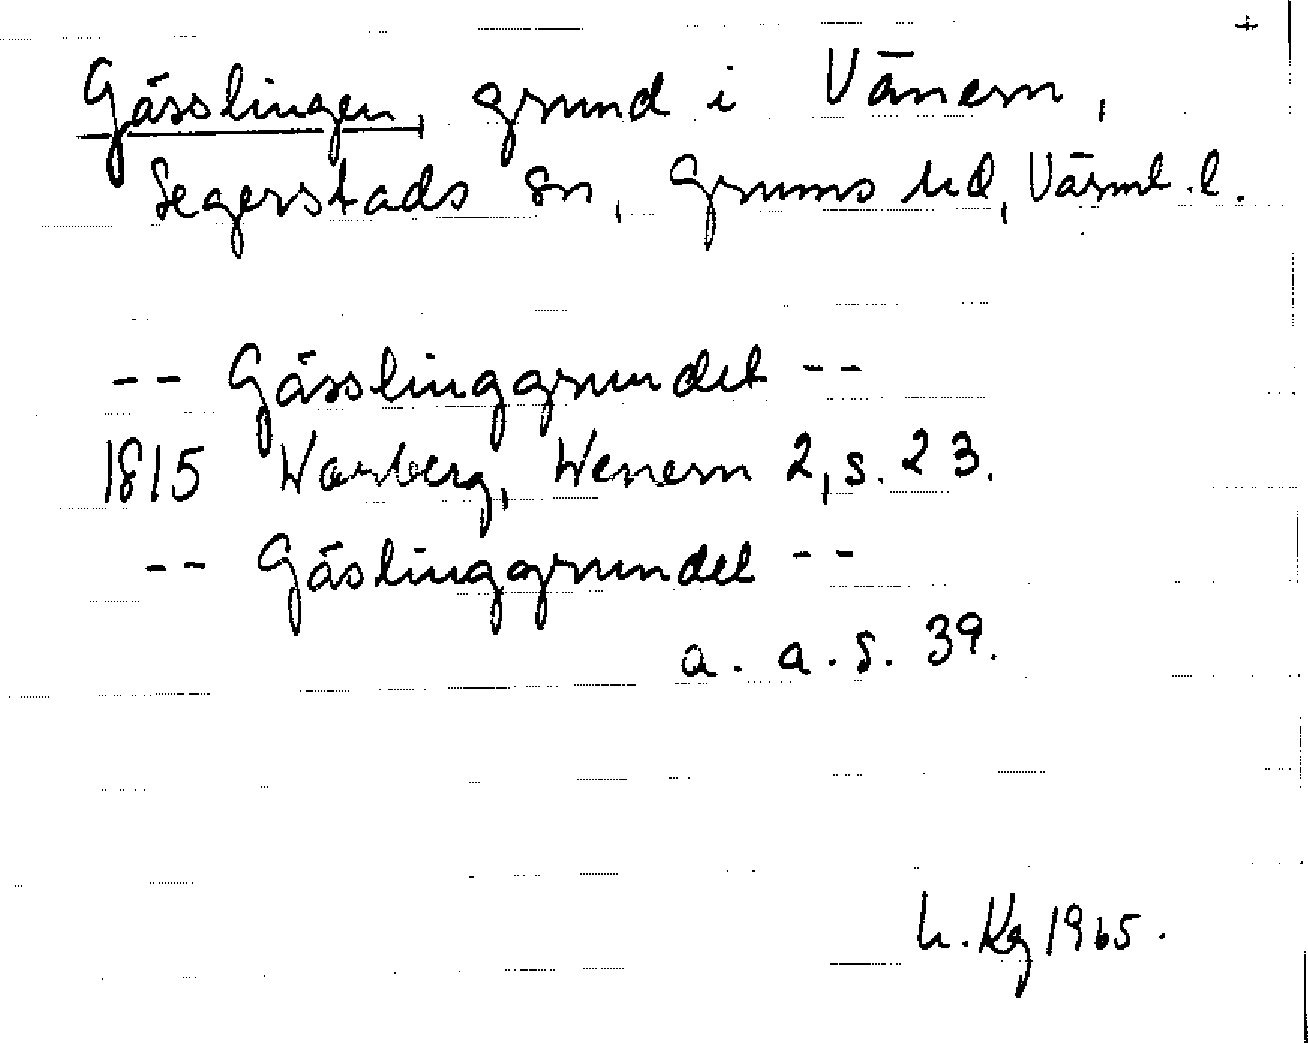 +
Gässlingen, grund i Vänern,
Segerstads sn, Grums hd, Värml. l.
-- Gässlinggrundet --
1815 Warberg, Wenern 2, s. 23.
-- Gäslinggrundet --
a. a. s. 39.
L. Kg 1965.